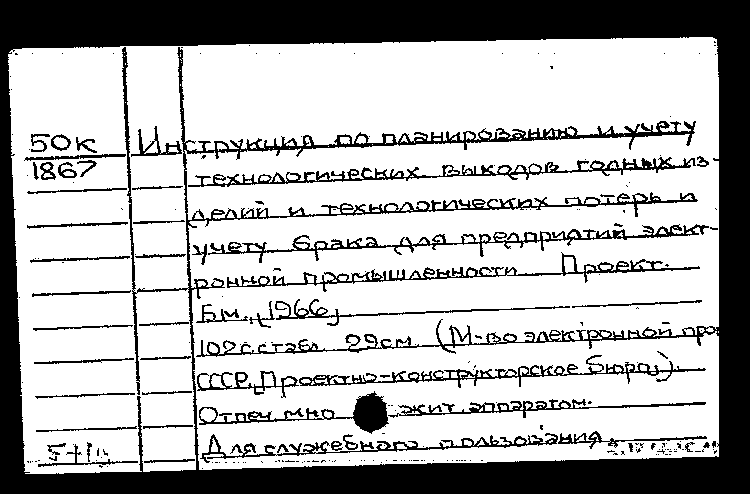 50к Инструкция по планированию и учету
1867 технологических выходов годных из-
делий и технологических потерь и
учету брака для предприятий элект-
ронной промышленности Проект.
Б.м., [1966]
102с.с табл. 29см. (М-во электронной про
СССР. [Проектно-конструкторское бюро]).
Отпеч. мно жит. аппаратом.
Для служебного пользования.